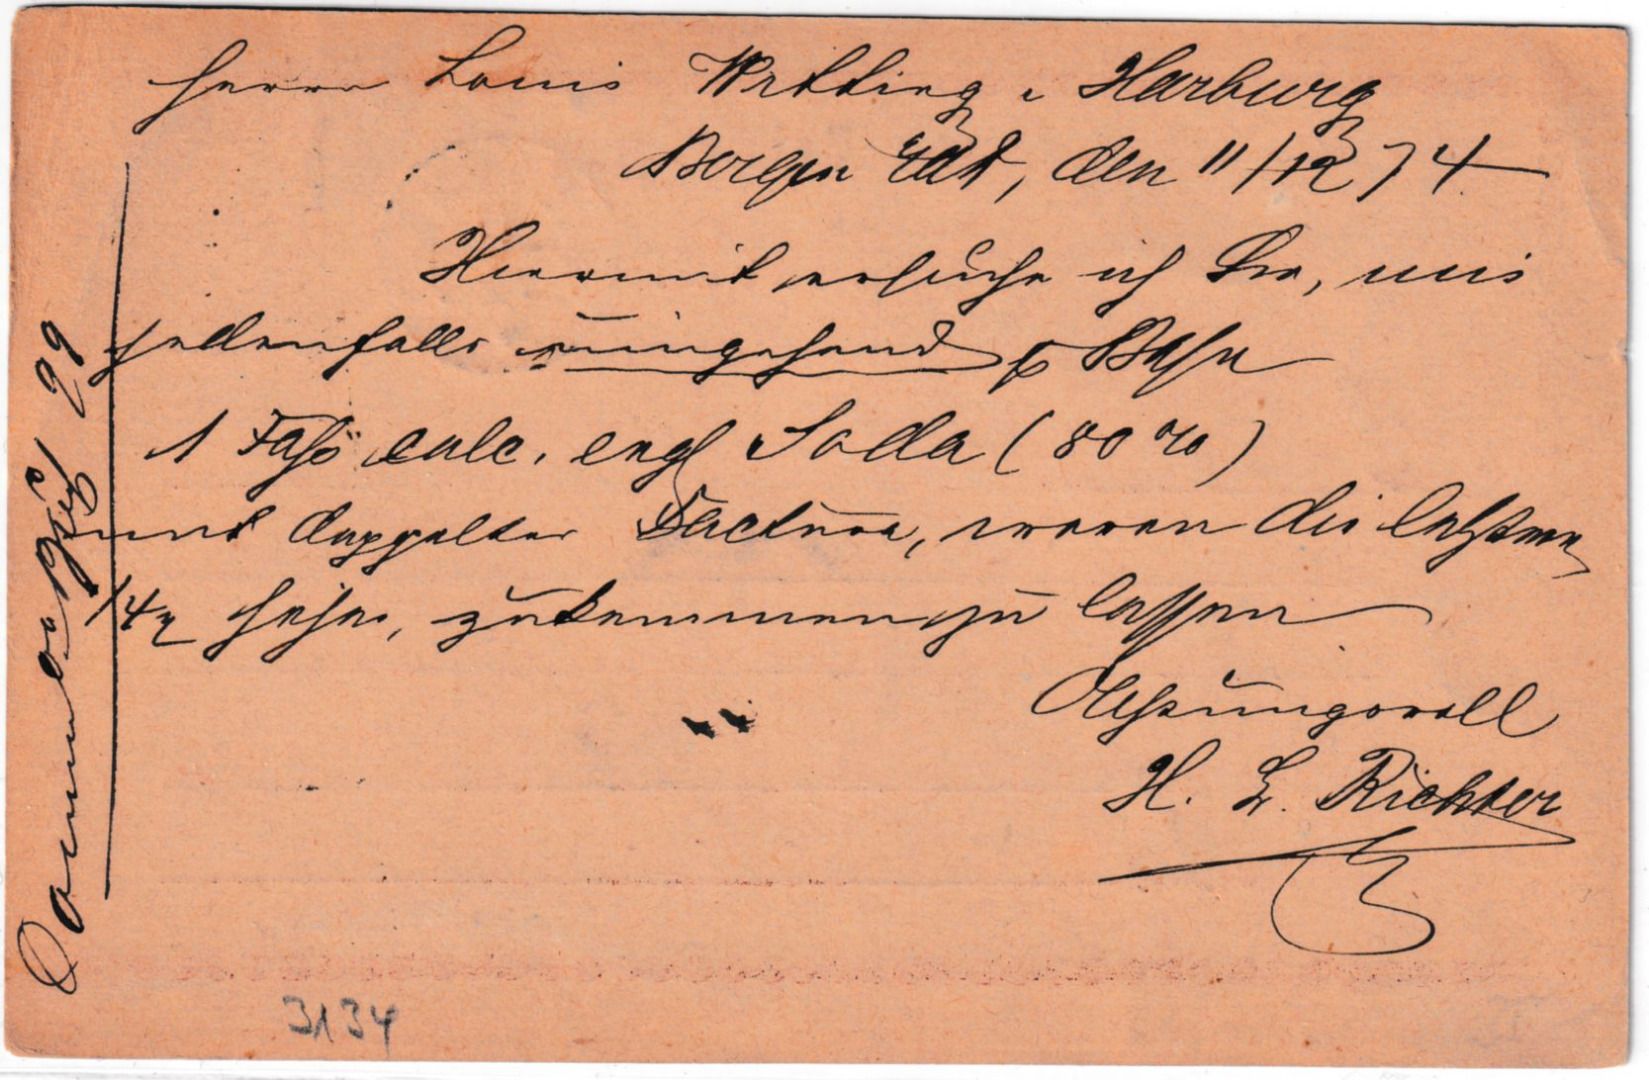 Herrn Louis Wedding, Harburg
Bergen, den 11/12 74
Hiermit ersuche ich Sie, mir
jedenfalls umgehend p Bahn
1 Faß calc. engl Soda (80 %)
mit doppelter Factura, wovon die letztere
höher, zukommen zu lassen
Achtungsvoll
H. L. Richter
3134